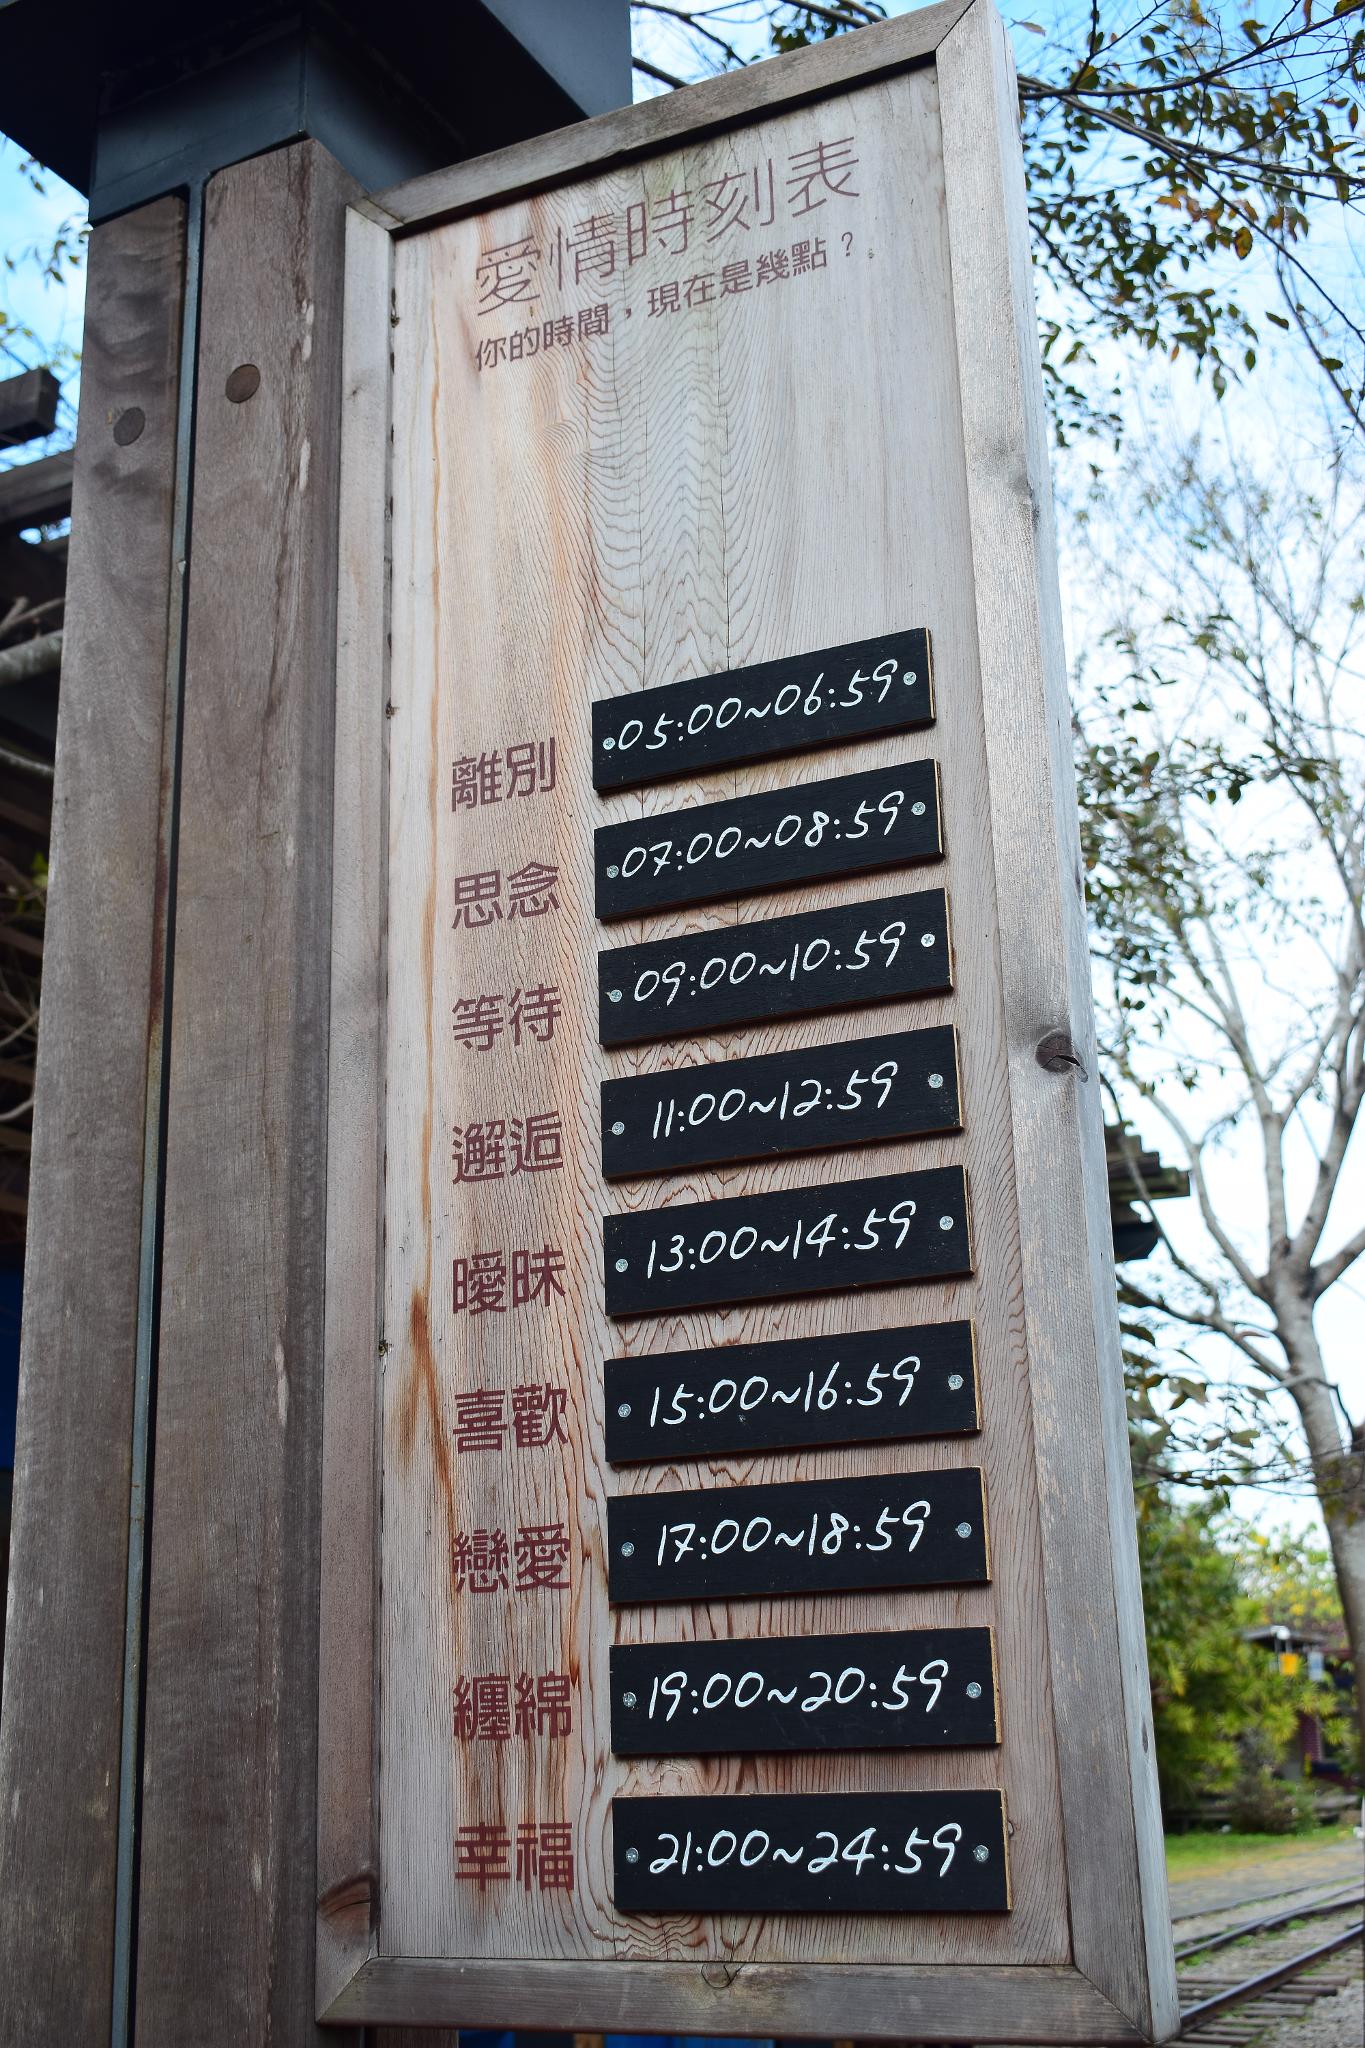 愛情時刻表
你的時間，現在是幾點？
離別 05:00~06:59
思念 07:00~08:59
等待 09:00~10:59
邂逅 11:00~12:59
曖昧 13:00~14:59
喜歡 15:00~16:59
戀愛 17:00~18:59
纏綿 19:00~20:59
幸福 21:00~24:59